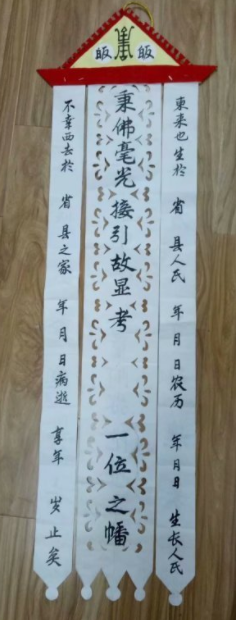 皈 皈
東来也生於 省 县人民 年月日农历 年月日 生长人氏
秉佛毫光接引故显考 一位之幡
不幸西去於 省 县之家 年月日病逝 享年 岁止矣